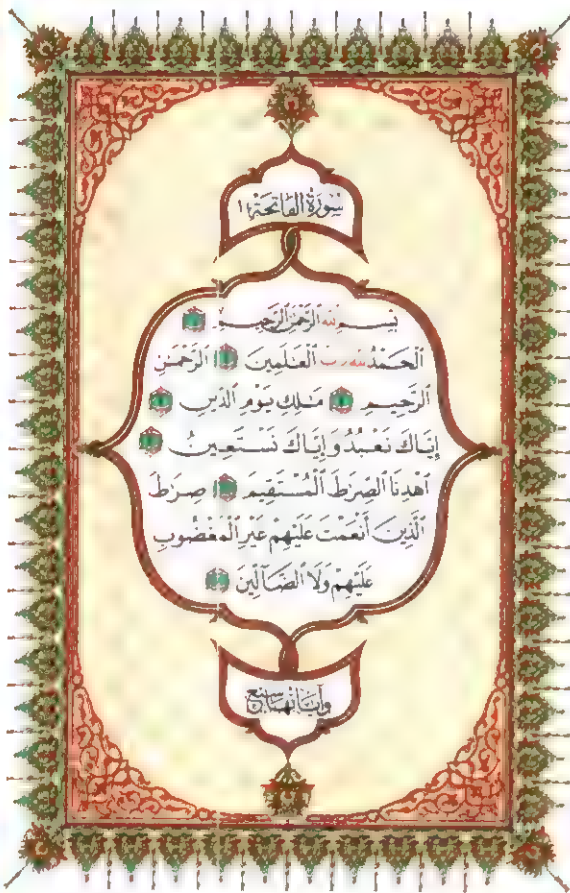 سُورَةُ الْفَاتِحَةِ ١
بِسْمِ اللَّهِ الرَّحْمَٰنِ الرَّحِيمِ
الْحَمْدُ لِلَّهِ رَبِّ الْعَٰلَمِينَ الرَّحْمَٰنِ
الرَّحِيمِ مَٰلِكِ يَوْمِ الدِّينِ
إِيَّاكَ نَعْبُدُ وَإِيَّاكَ نَسْتَعِينُ
ٱهْدِنَا ٱلصِّرَٰطَ ٱلْمُسْتَقِيمَ صِرَٰطَ
ٱلَّذِينَ أَنْعَمْتَ عَلَيْهِمْ غَيْرِ ٱلْمَغْضُوبِ
عَلَيْهِمْ وَلَا ٱلضَّآلِّينَ
وَآيَاتُهَا سَبْعٌ